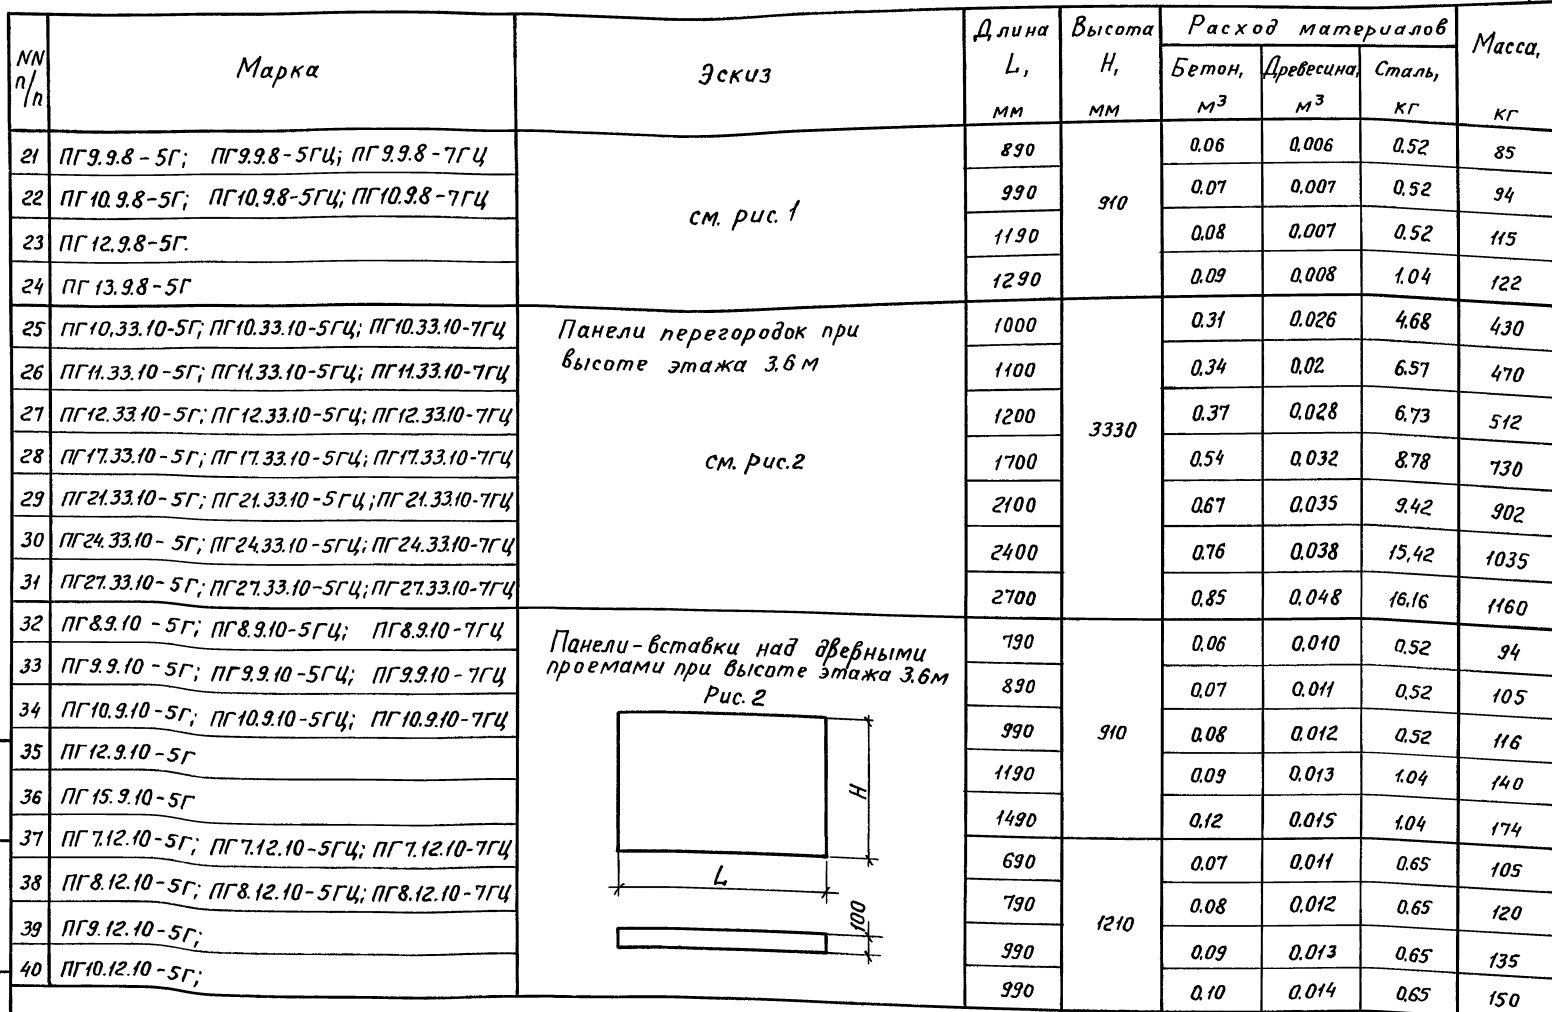 NN п/п Марка Эскиз Длина L, мм Высота H, мм Расход материалов Масса, кг
Бетон, м3 Древесина, м3 Сталь, кг
21 ПГ9.9.8-5Г; ПГ9.9.8-5ГЦ; ПГ9.9.8-7ГЦ 890 0.06 0.006 0.52 85
22 ПГ10.9.8-5Г; ПГ10.9.8-5ГЦ; ПГ10.9.8-7ГЦ 990 0.07 0.007 0.52 94
см. рис. 1 910
23 ПГ12.9.8-5Г. 1190 0.08 0.007 0.52 115
24 ПГ13.9.8-5Г 1290 0.09 0.008 1.04 122
25 ПГ10.33.10-5Г; ПГ10.33.10-5ГЦ; ПГ10.33.10-7ГЦ Панели перегородок при 1000 0.31 0.026 4.68 430
26 ПГ11.33.10-5Г; ПГ11.33.10-5ГЦ; ПГ11.33.10-7ГЦ высоте этажа 3.6 м 1100 0.34 0.02 6.57 470
27 ПГ12.33.10-5Г; ПГ12.33.10-5ГЦ; ПГ12.33.10-7ГЦ 1200 3330 0.37 0.028 6.73 512
28 ПГ17.33.10-5Г; ПГ17.33.10-5ГЦ; ПГ17.33.10-7ГЦ см. рис.2 1700 0.54 0.032 8.78 730
29 ПГ21.33.10-5Г; ПГ21.33.10-5ГЦ; ПГ21.33.10-7ГЦ 2100 0.67 0.035 9.42 902
30 ПГ24.33.10-5Г; ПГ24.33.10-5ГЦ; ПГ24.33.10-7ГЦ 2400 0.76 0.038 15.42 1035
31 ПГ27.33.10-5Г; ПГ27.33.10-5ГЦ; ПГ27.33.10-7ГЦ 2700 0.85 0.048 16.16 1160
32 ПГ8.9.10-5Г; ПГ8.9.10-5ГЦ; ПГ8.9.10-7ГЦ Панели-вставки над дверными 790 0.06 0.010 0.52 94
33 ПГ9.9.10-5Г; ПГ9.9.10-5ГЦ; ПГ9.9.10-7ГЦ проемами при высоте этажа 3.6м 890 0.07 0.011 0.52 105
Рис. 2
34 ПГ10.9.10-5Г; ПГ10.9.10-5ГЦ; ПГ10.9.10-7ГЦ 990 910 0.08 0.012 0.52 116
35 ПГ12.9.10-5Г 1190 0.09 0.013 1.04 140
36 ПГ15.9.10-5Г H 1490 0.12 0.015 1.04 174
37 ПГ7.12.10-5Г; ПГ7.12.10-5ГЦ; ПГ7.12.10-7ГЦ 690 0.07 0.011 0.65 105
38 ПГ8.12.10-5Г; ПГ8.12.10-5ГЦ; ПГ8.12.10-7ГЦ L 790 0.08 0.012 0.65 120
39 ПГ9.12.10-5Г; 100 990 1210 0.09 0.013 0.65 135
40 ПГ10.12.10-5Г; 990 0.10 0.014 0.65 150